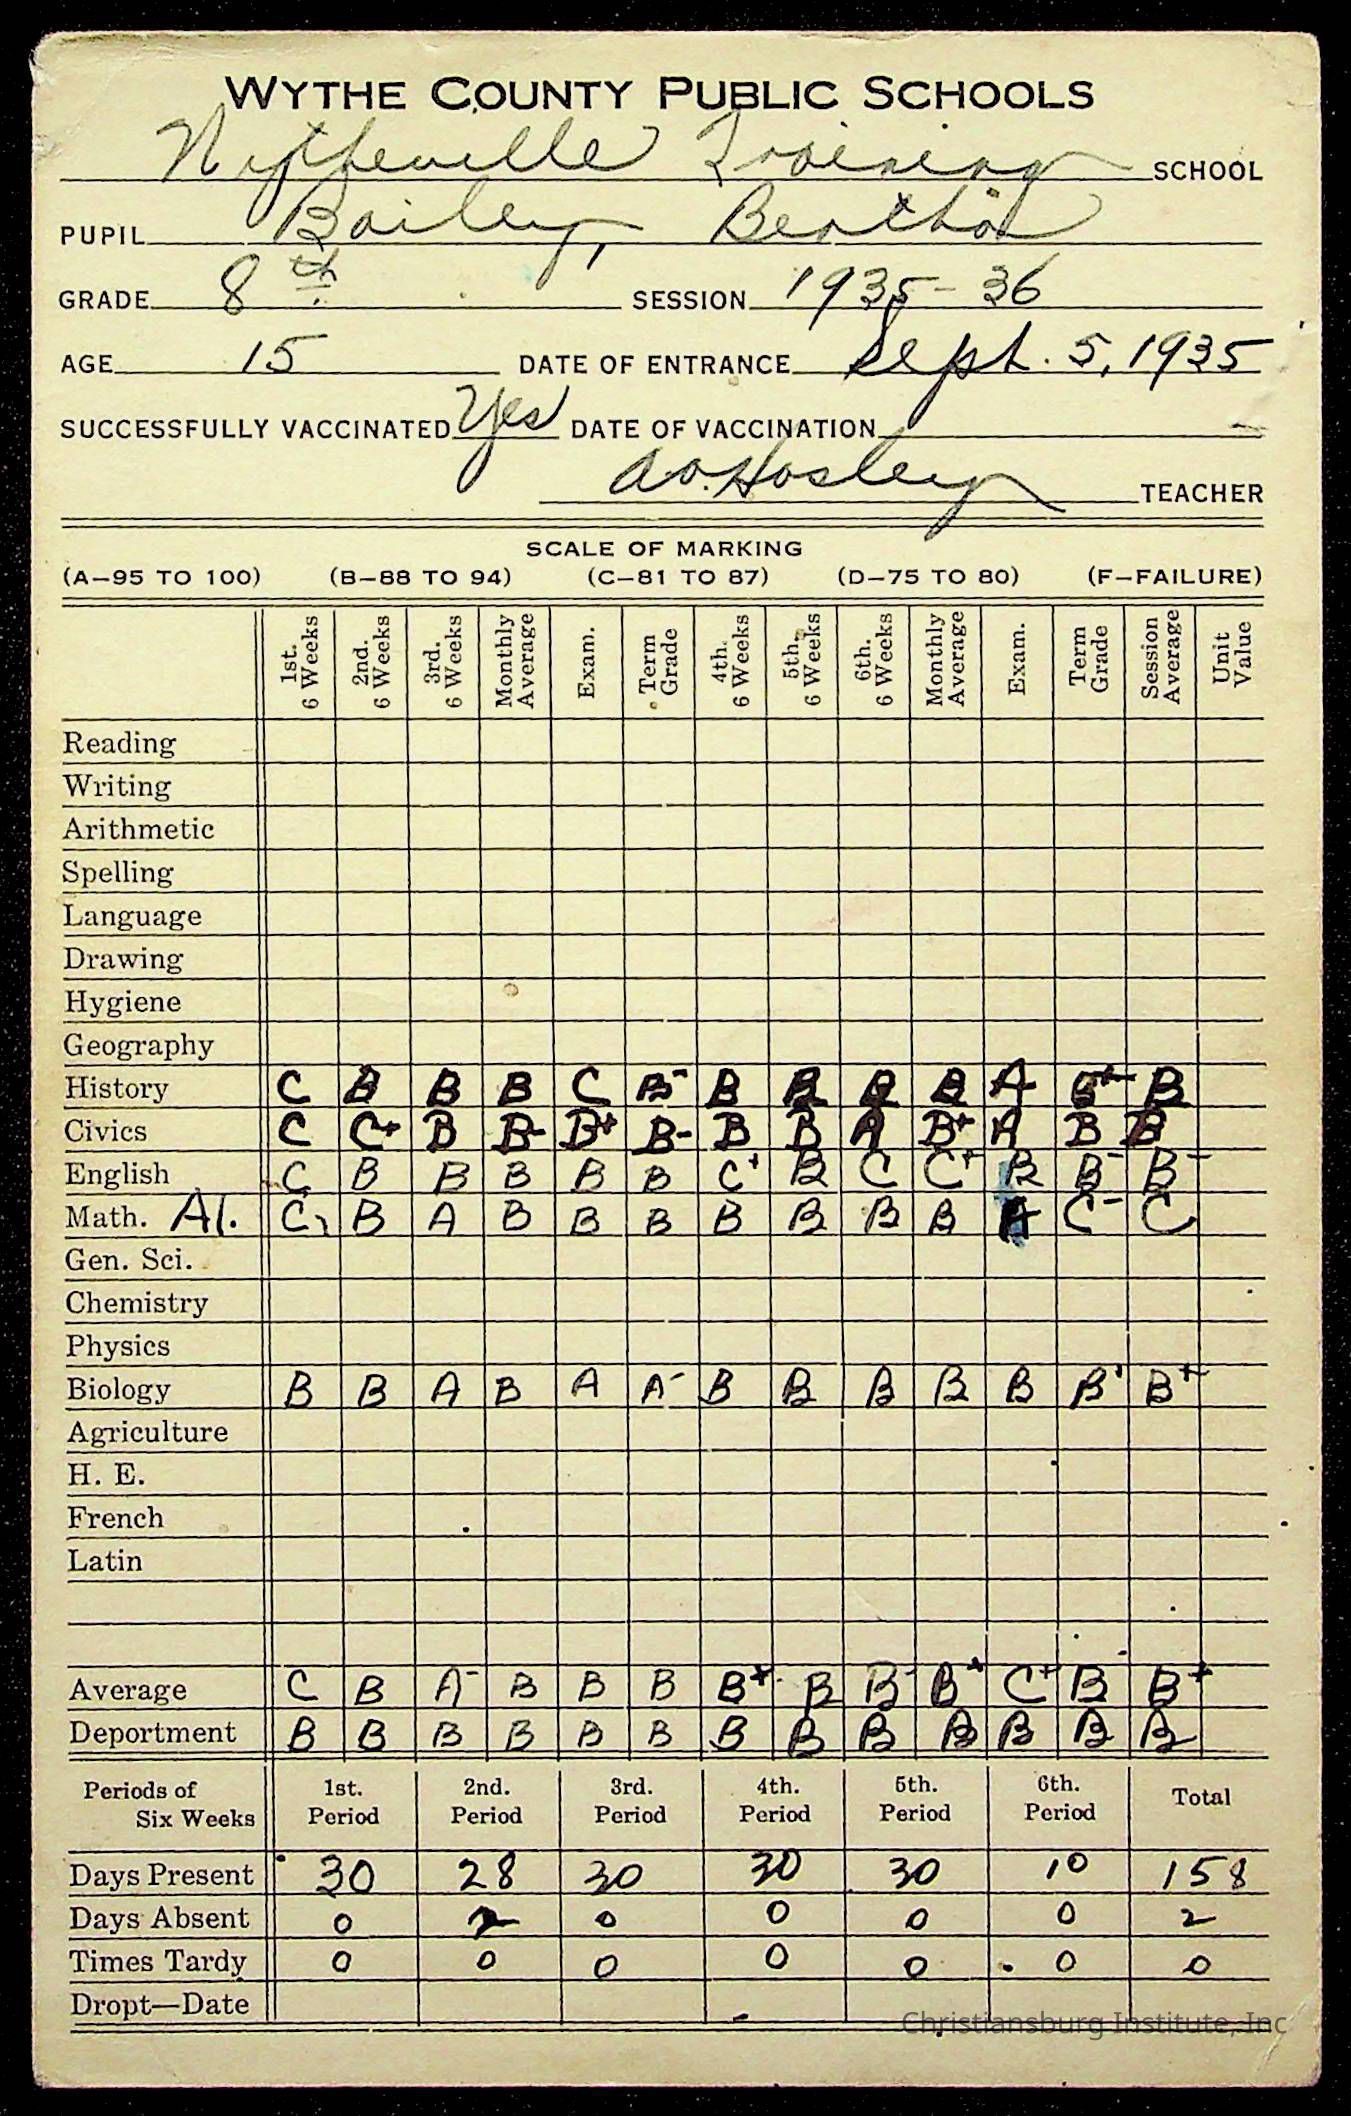 WYTHE COUNTY PUBLIC SCHOOLS
Wytheville Training SCHOOL
PUPIL Bailey, Bertha
GRADE 8th SESSION 1935-36
AGE 15 DATE OF ENTRANCE Sept. 5, 1935
SUCCESSFULLY VACCINATED Yes DATE OF VACCINATION
A.O. Hosley TEACHER
SCALE OF MARKING
(A-95 TO 100) (B-88 TO 94) (C-81 TO 87) (D-75 TO 80) (F-FAILURE)
1st. 6 Weeks 2nd. 6 Weeks 3rd. 6 Weeks Monthly Average Exam. Term Grade 4th. 6 Weeks 5th. 6 Weeks 6th. 6 Weeks Monthly Average Exam. Term Grade Session Average Unit Value
Reading
Writing
Arithmetic
Spelling
Language
Drawing
Hygiene
Geography
History C B B B C B- B B B B A B
Civics C C+ B B- B+ B- B B A B+ A B B
English C B B B B B C+ B C C+ B B- B-
Math. Al. C B A B B B B B B B A C- C
Gen. Sci.
Chemistry
Physics
Biology B B A B A A- B B B B B B+ B+
Agriculture
H. E.
French
Latin
Average C B A- B B B B+ B B- B+ C+ B B+
Deportment B B B B B B B B B B B B B
Periods of Six Weeks 1st. Period 2nd. Period 3rd. Period 4th. Period 5th. Period 6th. Period Total
Days Present 30 28 30 30 30 10 158
Days Absent 0 2 0 0 0 0 2
Times Tardy 0 0 0 0 0 0 0
Dropt—Date
Christiansburg Institute, Inc